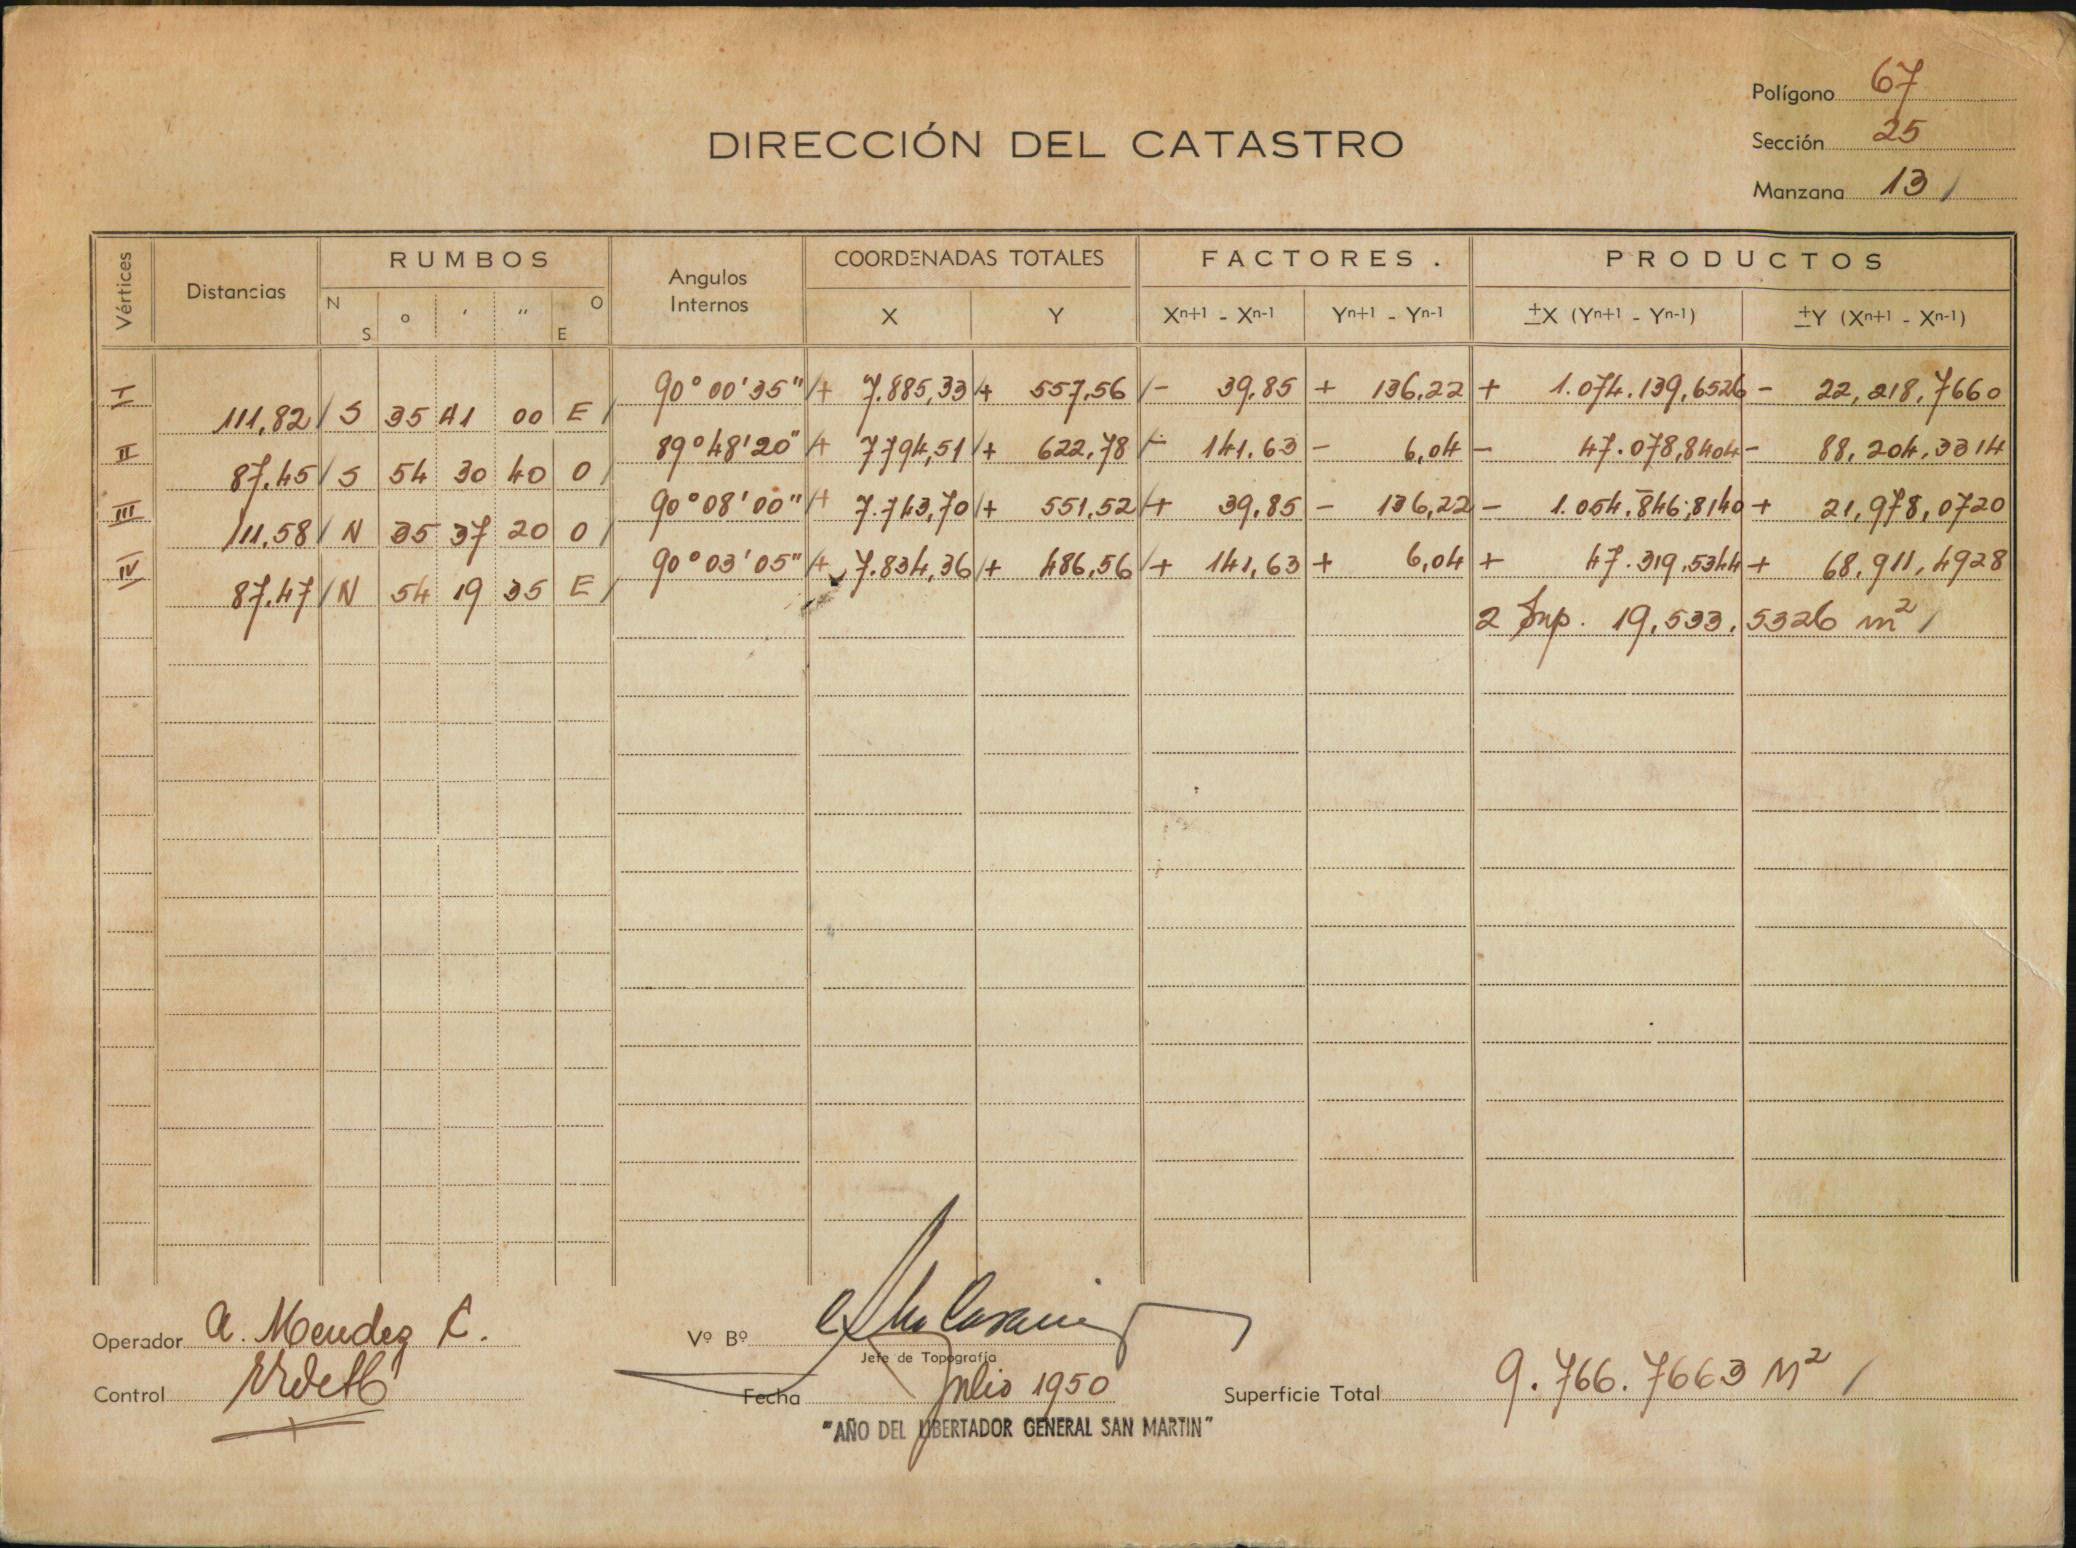 Polígono 67
DIRECCIÓN DEL CATASTRO
Sección 25
Manzana 13 /
Vértices Distancias RUMBOS Angulos Internos COORDENADAS TOTALES FACTORES. PRODUCTOS
N S o ′ ″ E O X Y Xn+1 - Xn-1 Yn+1 - Yn-1 ±X (Yn+1 - Yn-1) ±Y (Xn+1 - Xn-1)
I 90° 00' 35" /+ 7.885,33 + 557,56 /- 39,85 + 136,22 + 1.074.139,6526 - 22,218,7660
111,82 / S 35 41 00 E /
II 89° 48' 20" /+ 7794,51 /+ 622,78 /- 141.63 - 6,04 - 47.078,8404 - 88,204,3314
87,45 / S 54 30 40 O /
III 90° 08' 00" /+ 7.743,70 /+ 551,52 /+ 39,85 - 136,22 - 1.054.846,8140 + 21,978,0720
111.58 / N 35 37 20 O /
IV 90° 03' 05" /+ 7.834,36 /+ 486,56 /+ 141,63 + 6,04 + 47.319,5344 + 68,911,4928
87,47 / N 54 19 35 E /
2 Sup. 19,533,5326 m² /
Operador A. Mendez C.
Vº Bº
Jefe de Topografía
Control
Fecha Julio 1950
Superficie Total 9.766.7663 M² /
"AÑO DEL LIBERTADOR GENERAL SAN MARTIN"